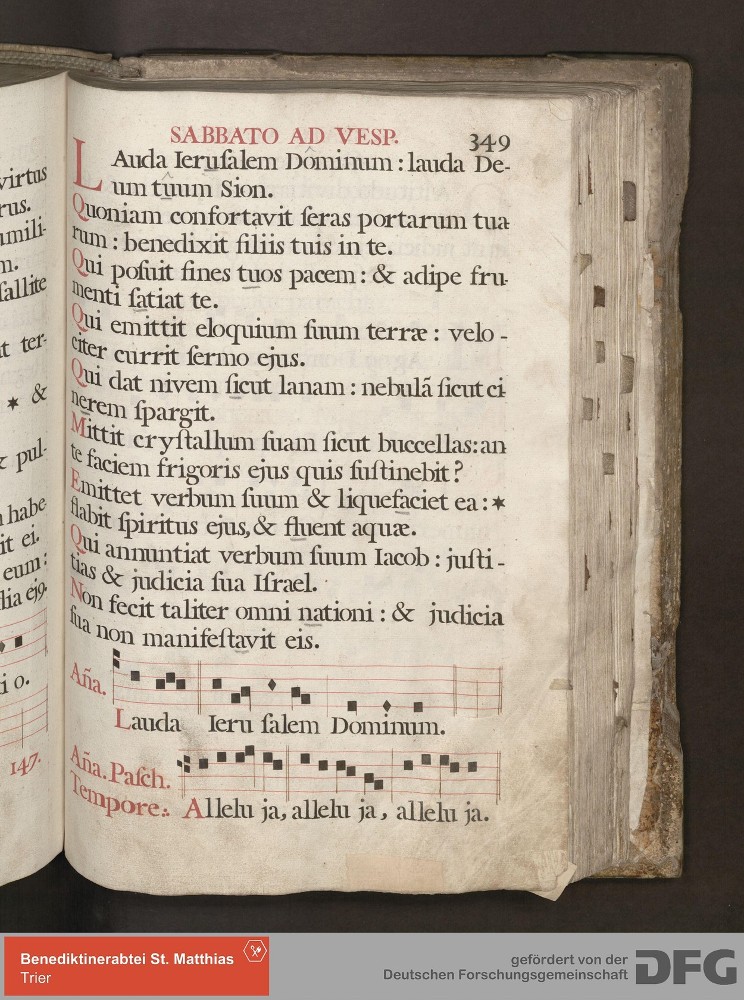 virtus
rus.
umili-
m.
sallite
at ter-
✶ &
& pul-
habe
it ei.
eum:
lia ej9.
i o.
147.
SABBATO AD VESP. 349
LAuda Ieruſalem Dôminum : lauda De-
um tûum Sion.
Quoniam confortavit ſeras portarum tua
rum : benedixit filiis tuis in te.
Qui poſuit fines tuos pacem : & adipe fru-
menti ſatiat te.
Qui emittit eloquium ſuum terræ : velo -
citer currit ſermo ejus.
Qui dat nivem ſicut lanam : nebulã ſicut ci
nerem ſpargit.
Mittit cryſtallum ſuam ſicut buccellas: an
te faciem frigoris ejus quis ſuſtinebit?
Emittet verbum ſuum & liquefaciet ea : ✶
flabit ſpiritus ejus, & fluent aquæ.
Qui annuntiat verbum ſuum Iacob : juſti -
tias & judicia ſua Iſrael.
Non fecit taliter omni nationi : & judicia
ſua non manifeſtavit eis.
Aña.
Lauda Ieru ſalem Dominum.
Aña. Paſch.
Tempore.: Allelu ja, allelu ja, allelu ja.
Benediktinerabtei St. Matthias
Trier
gefördert von der
Deutschen Forschungsgemeinschaft DFG